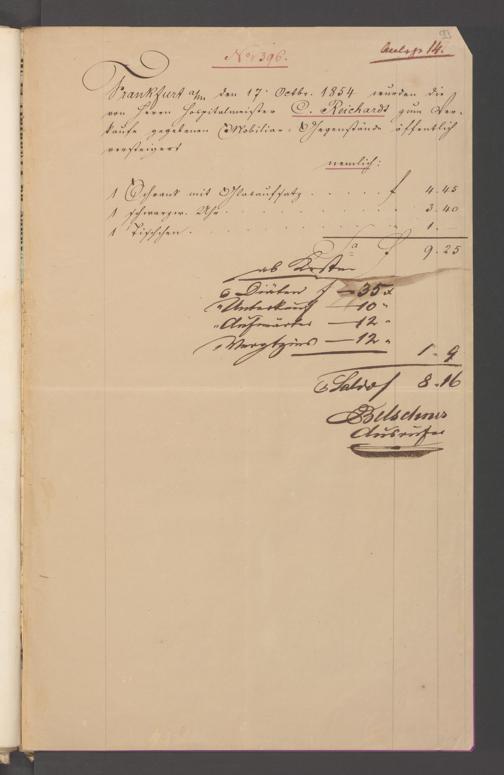 93
Anlage 14.
No 396.
Frankfurt a/m den 17. Octbr. 1854 wurden die
von Herrn Hospitalmeister C. Reichardt zum Ver-
kaufe gegebenen Mobiliar-Gegenstände öffentlich
versteigert
nemlich:
1 Schrank mit Glasaufsatz . . . . . f 4. 45
1 schwarzw. Uhr . . . . . . . . . 3. 40
1 Tischchen . . . . . . . . . . 1. —
Sa f 9. 25
ab Kosten
Diäten f — 35 x
" — 10 "
" Aufwärter — 12 "
" — 12 "
1. 9
Saldo f 8. 16
Belschner
Ausrufer